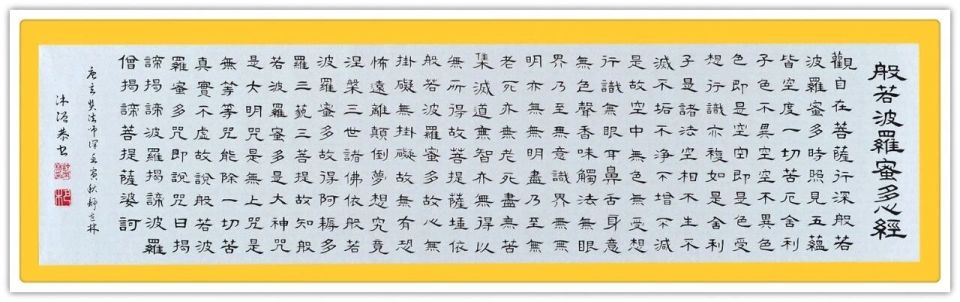 般若波羅蜜多心經
觀自在菩薩行深般若
波羅蜜多時照見五蘊
皆空度一切苦厄舍利
子色不異空空不異色
色即是空空即是色受
想行識亦複如是舍利
子是諸法空相不生不
滅不垢不淨不增不減
是故空中無色無受想
行識無眼耳鼻舌身意
無色聲香味觸法無眼
界乃至無意識界無無
明亦無無明盡乃至無
老死亦無老死盡無苦
集滅道無智亦無得以
無所得故菩提薩埵依
般若波羅蜜多故心無
掛礙無掛礙故無有恐
怖遠離顛倒夢想究竟
涅槃三世諸佛依般若
波羅蜜多故得阿耨多
羅三藐三菩提故知般
若波羅蜜多是大神咒
是大明咒是無上咒是
無等等咒能除一切苦
真實不虛故說般若波
羅蜜多咒即說咒曰揭
諦揭諦波羅揭諦波羅
僧揭諦菩提薩婆訶
唐玄奘法師译壬寅秋
沐浴恭书